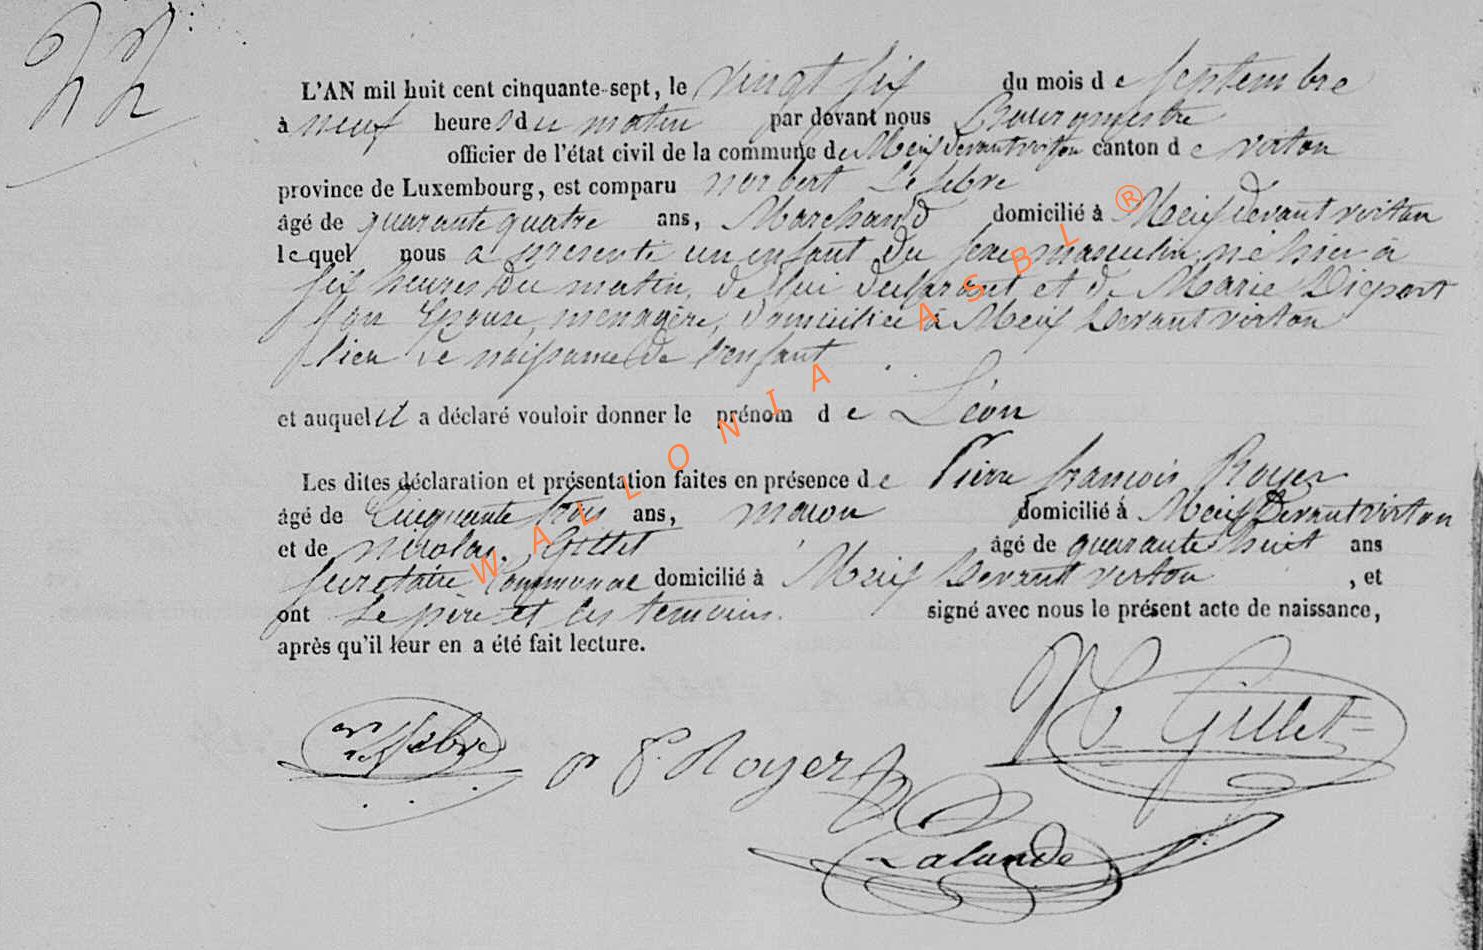 22
L'AN mil huit cent cinquante-sept, le vingt six du mois de septembre
à neuf heures du matin par devant nous Bourgmestre
officier de l'état civil de la commune de Meix devant virton canton de virton
province de Luxembourg, est comparu norbert Lefebvre
âgé de quarante quatre ans, Marchand domicilié à Meix devant virton
lequel nous a présenté un enfant du sexe masculin, né hier à
six heures du matin, de lui déclarant et de Marie Diepart
son Epouse, menagère, domiciliée à Meix Devant virton
lieu de naissance de l'enfant
et auquel il a déclaré vouloir donner le prénom de Léon
Les dites déclaration et présentation faites en présence de Pierre françois Royer
âgé de Cinquante trois ans, macon domicilié à Meix Devant virton
et de nicolas Gillet âgé de quarante huit ans
secretaire Communal domicilié à Meix Devant virton , et
ont le père et les temoins. signé avec nous le présent acte de naissance,
après qu'il leur en a été fait lecture.
N Gillet
Lefebvre
p f. Royer
Lalande
WALLONIA ASBL ®